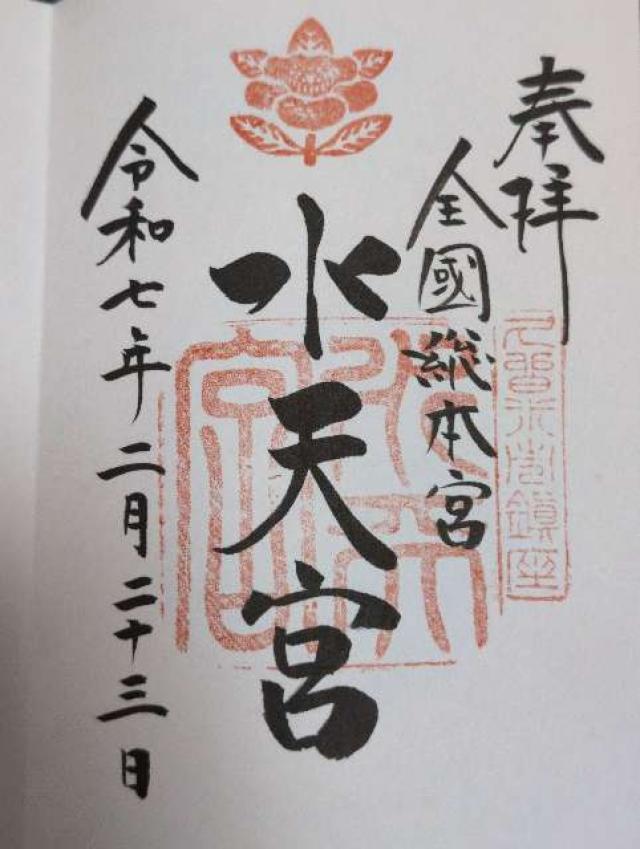 奉拝
全國総本宮
水天宮
令和七年二月二十三日
水天宮